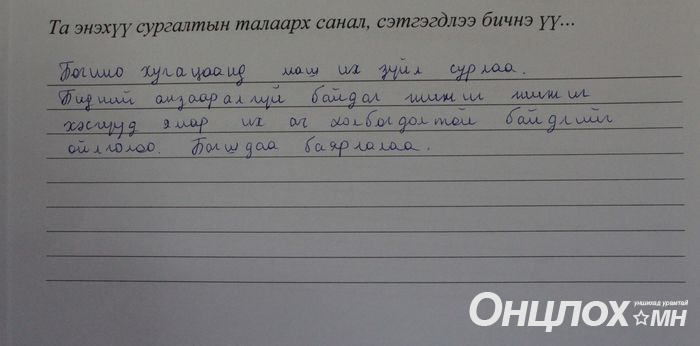 Та энэхүү сургалтын талаарх санал, сэтгэгдлээ бичнэ үү...
Богино хугацаанд маш их зүйл сурлаа.
Бидний анзааралгүй байдаг жижиг жижиг
хэсгүүд ямар их ач холбогдолтой байдгийг
ойлголоо. Багшдаа баярлалаа.
уншихад урамтай
Онцлох☆МН